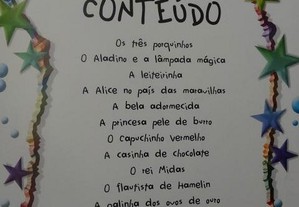 CONTEÚDO
Os três porquinhos
O Aladino e a lâmpada mágica
A leiteirinha
A Alice no país das maravilhas
A bela adormecida
A princesa pele de burro
O Capuchinho Vermelho
A casinha de chocolate
O rei Midas
O flautista de Hamelin
A galinha dos ovos de ouro